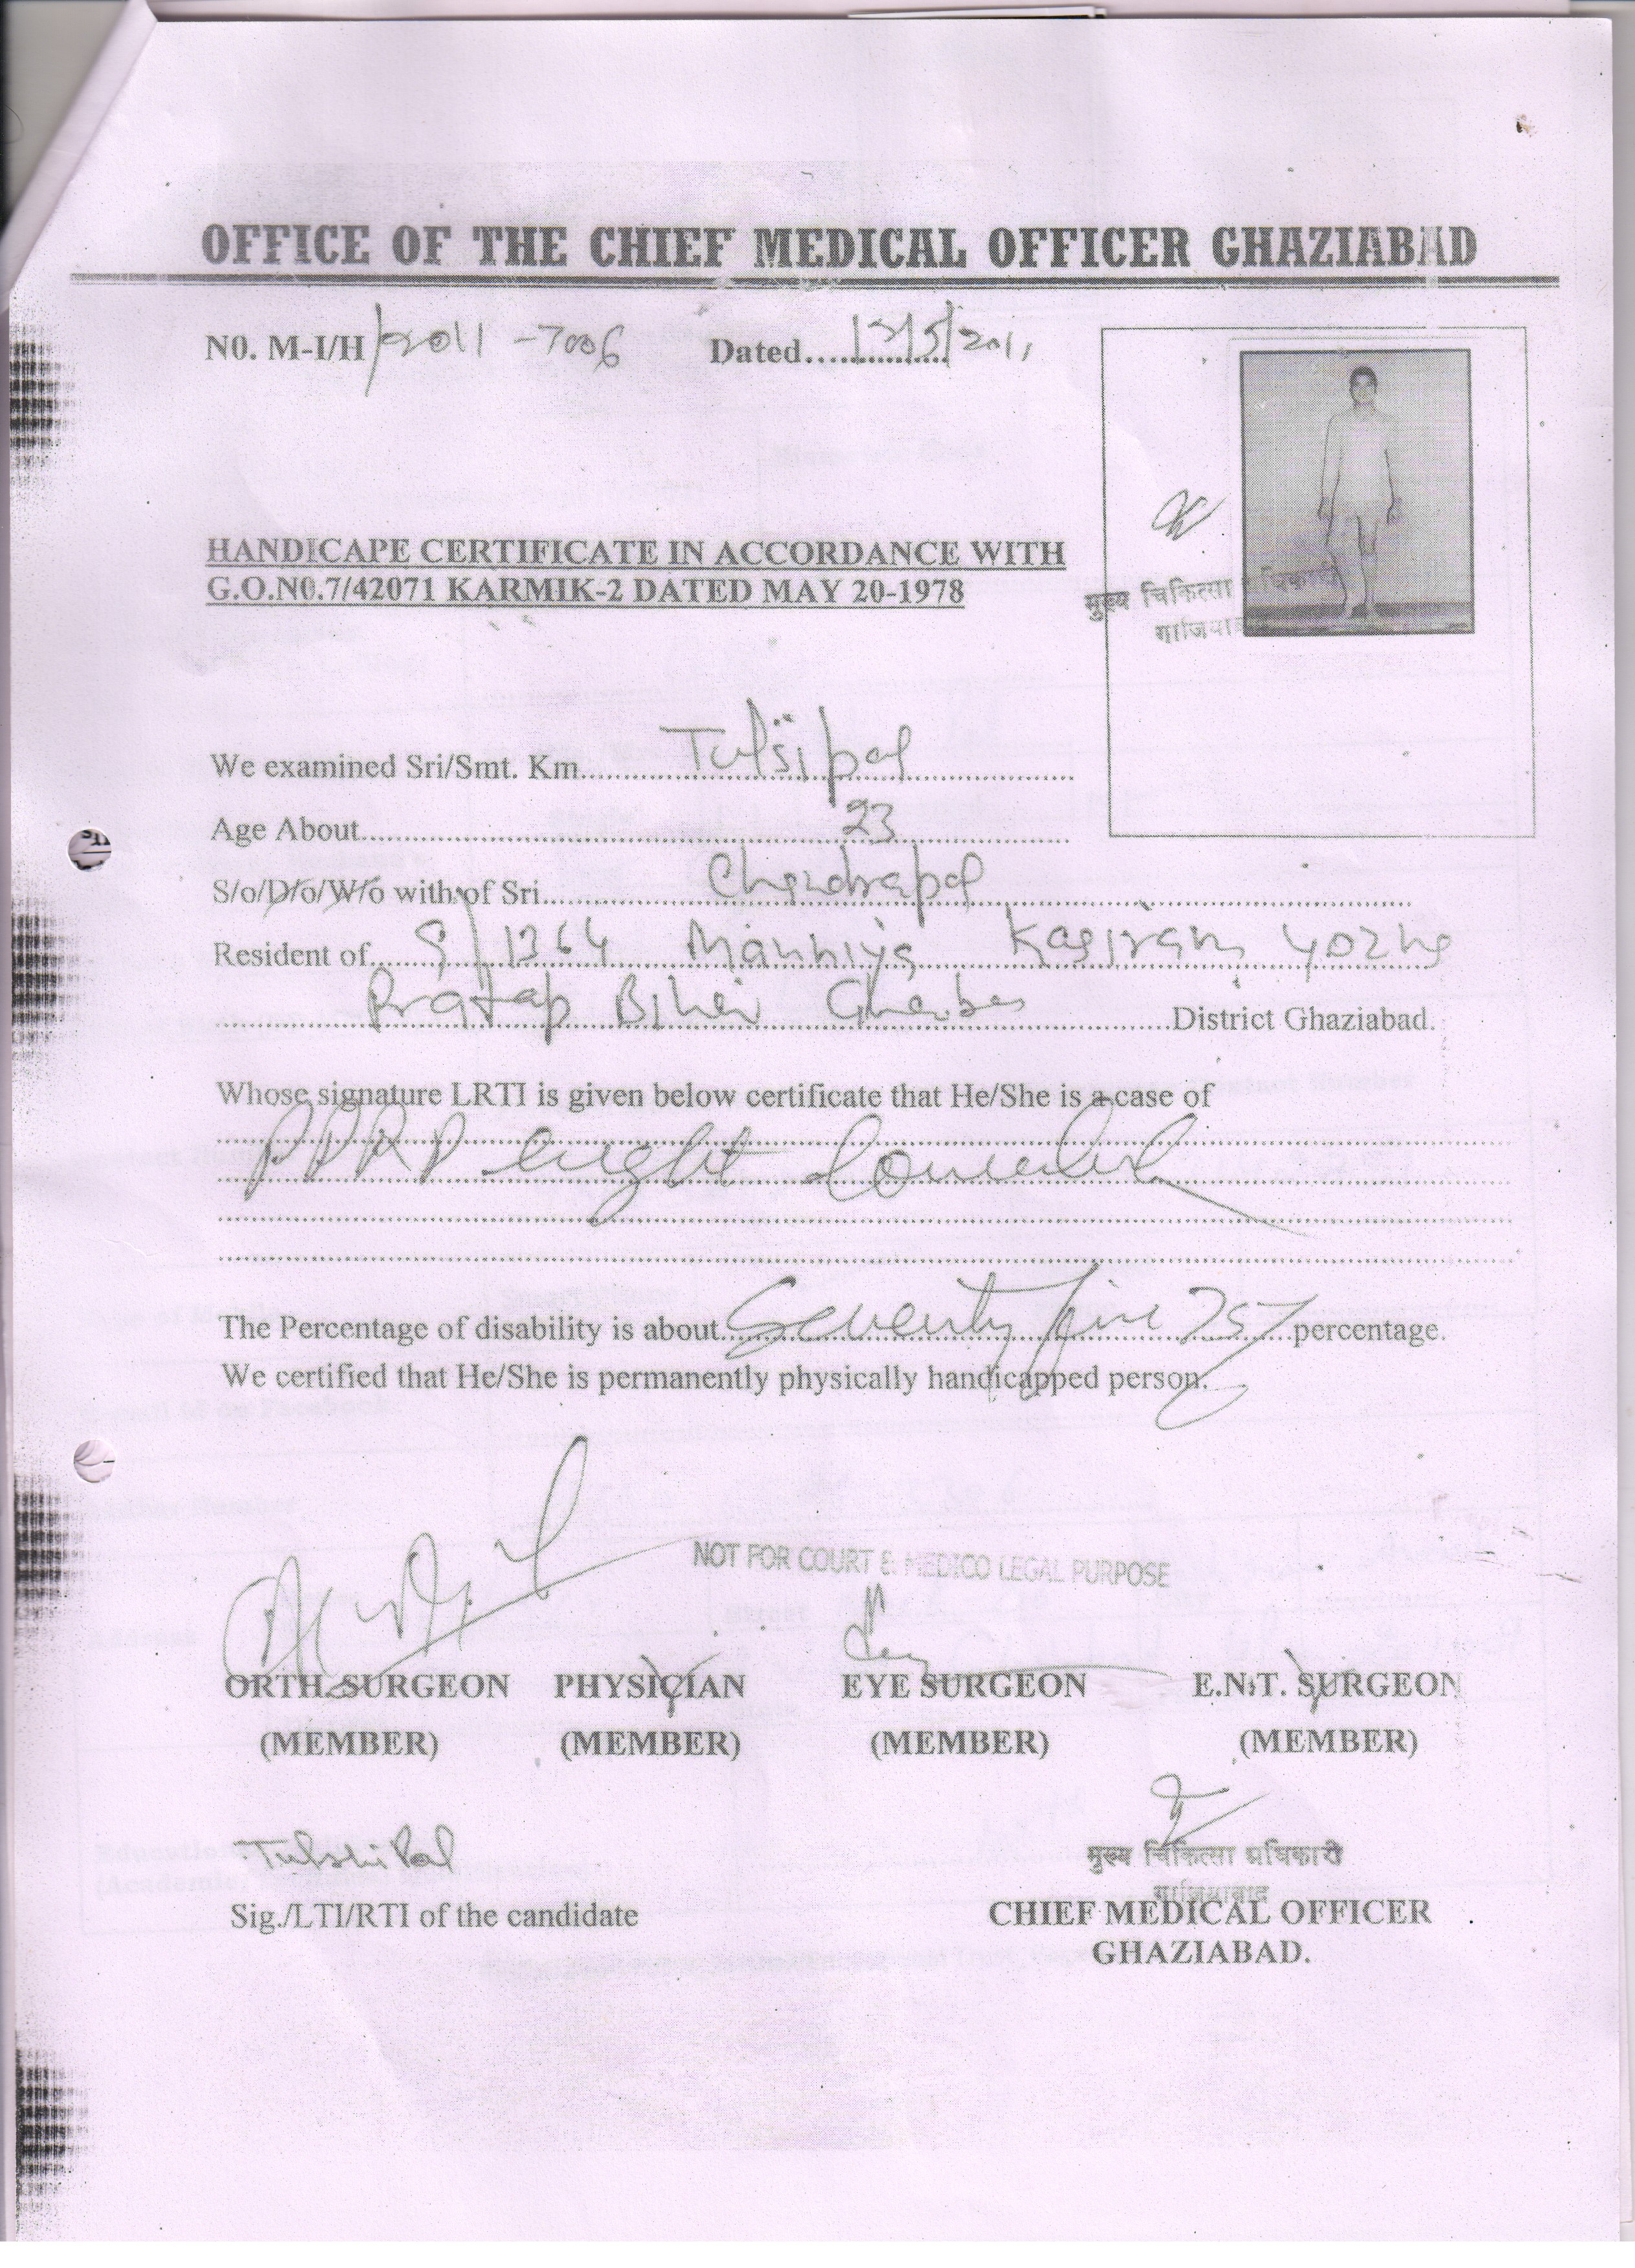 OFFICE OF THE CHIEF MEDICAL OFFICER GHAZIABAD
N0. M-I/H/2011 -7006 Dated..................13/5/2011
HANDICAPE CERTIFICATE IN ACCORDANCE WITH
G.O.N0.7/42071 KARMIK-2 DATED MAY 20-1978
मुख्य चिकित्सा
We examined Sri/Smt. Km. Tulsipal
Age About 23
S/o/D/o/W/o with of Sri Chandrapal
Resident of S/1364 Manniya Kasiram
Pratap Bihar District Ghaziabad.
Whose signature LRTI is given below certificate that He/She is a case of
PPRP
The Percentage of disability is about Seventy five 75% percentage.
We certified that He/She is permanently physically handicapped person.
NOT FOR COURT & MEDICO LEGAL PURPOSE
ORTH.SURGEON PHYSICIAN EYE SURGEON E.N.T. SURGEON
(MEMBER) (MEMBER) (MEMBER) (MEMBER)
TulshiPal
मुख्य चिकित्सा अधिकारी
गाजियाबाद
Sig./LTI/RTI of the candidate CHIEF MEDICAL OFFICER
GHAZIABAD.